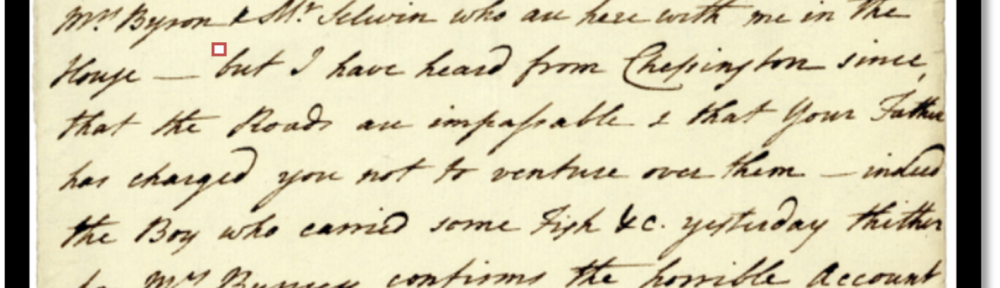 Mrs. Byron & Mr. Selwin who are here with me in the
House — but I have heard from Chessington since,
that the Roads are impassable & that Your Father
has charged you not to venture over them — indeed
the Boy who carried some Fish &c. yesterday thither
to Mrs Burney confirms the horrible Account